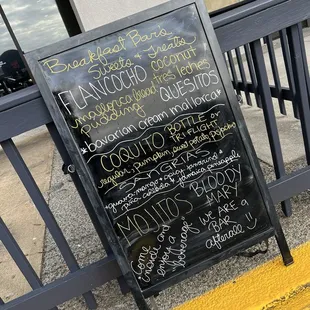 Breakfast Bar's
Sweets & Treats
FLANCOCHO coconut
mallorca bread tres leches
pudding QUESITOS
bavarian cream mallorca
COQUITO BOTTLE or
TRI FLIGHT
regular, pumpkin, sweet potato, pistachio
SANGRIAS
guava, mango, spicy tamarind
piña colada, jamaica, pineapple
MOJITOS BLOODY
MARY
come
inside and
enjoy a
"beverage"
WE ARE A
BAR
afterall!